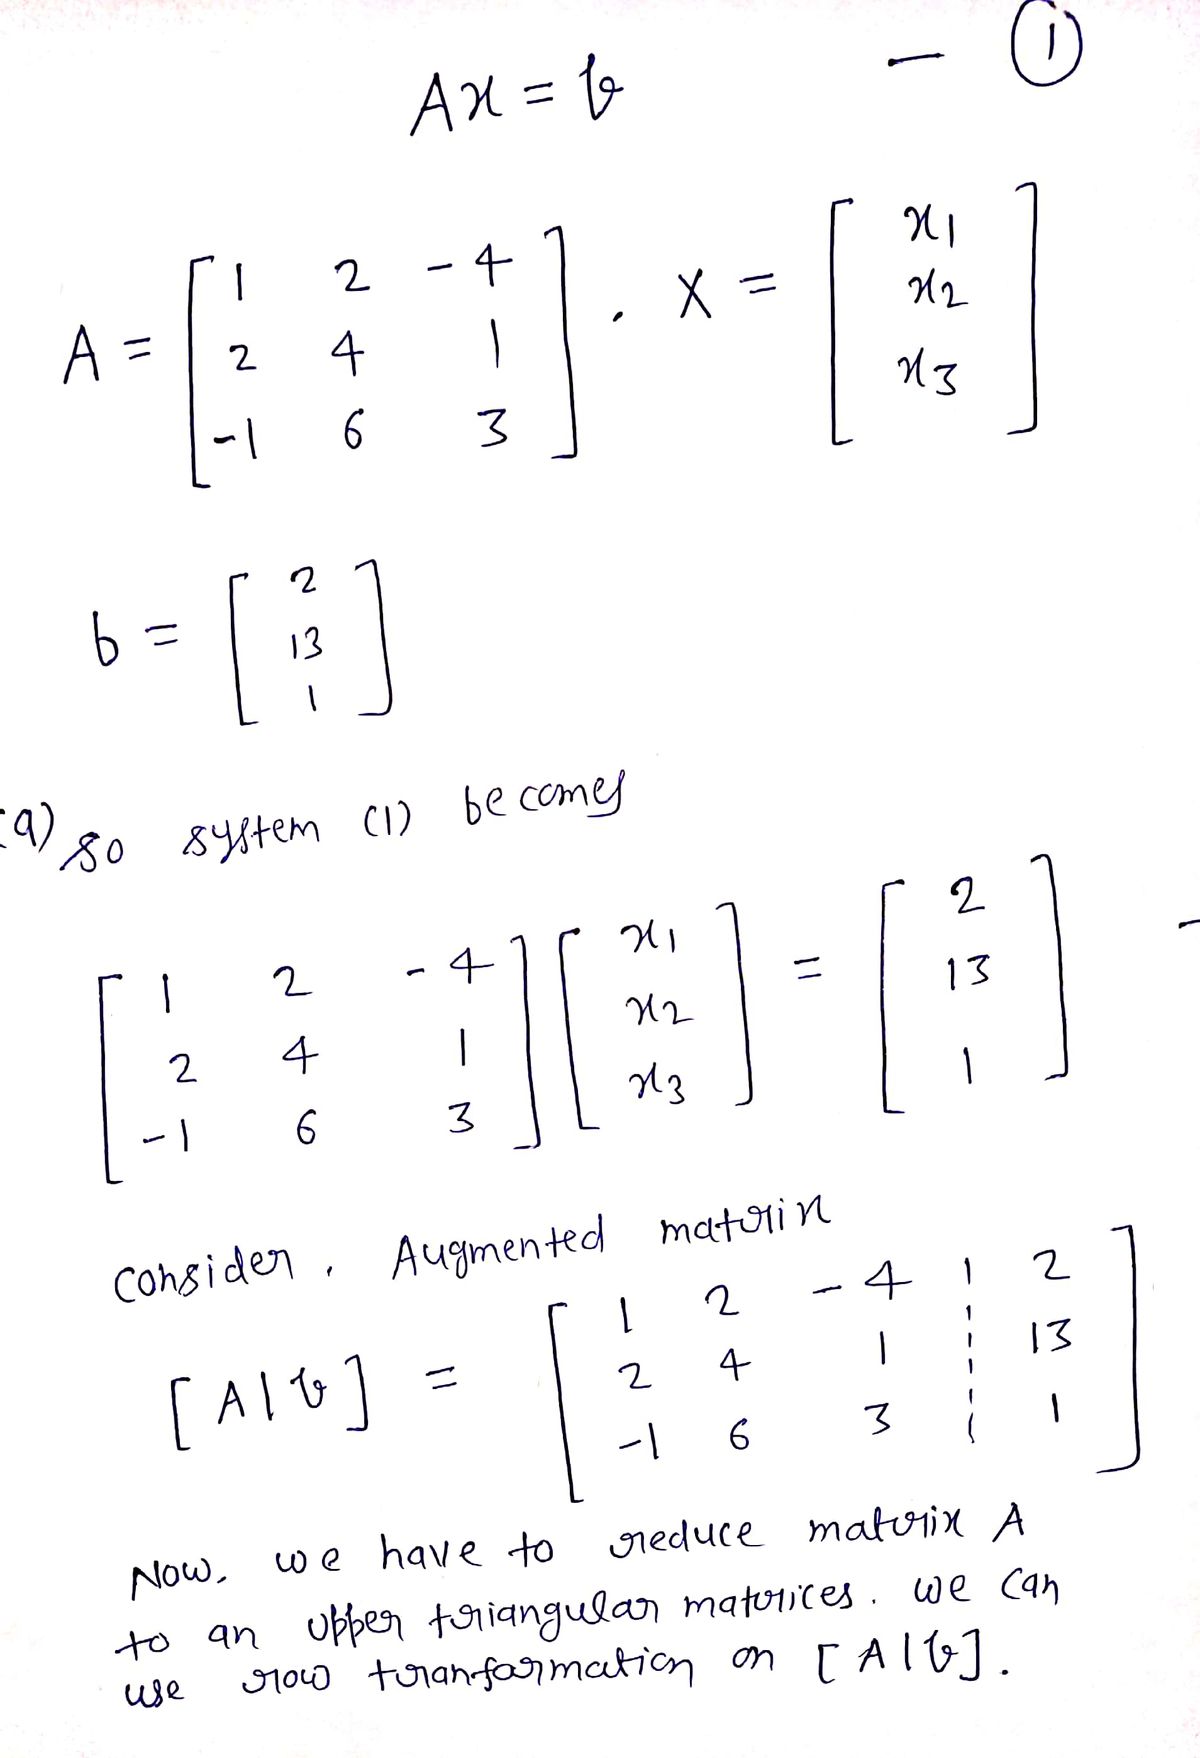 Ax = b — ①
A = [ 1 2 -4
2 4 1
-1 6 3 ] . X = [ x1
x2
x3 ]
b = [ 2
13
1 ]
(a) so system (1) becomes
[ 1 2 -4
2 4 1
-1 6 3 ] [ x1
x2
x3 ] = [ 2
13
1 ] -
Consider, Augmented matrix
[A|b] = [ 1 2 -4 | 2
2 4 1 | 13
-1 6 3 | 1 ]
Now, we have to reduce matrix A
to an upper triangular matrices. we can
use row tranformation on [A|b].